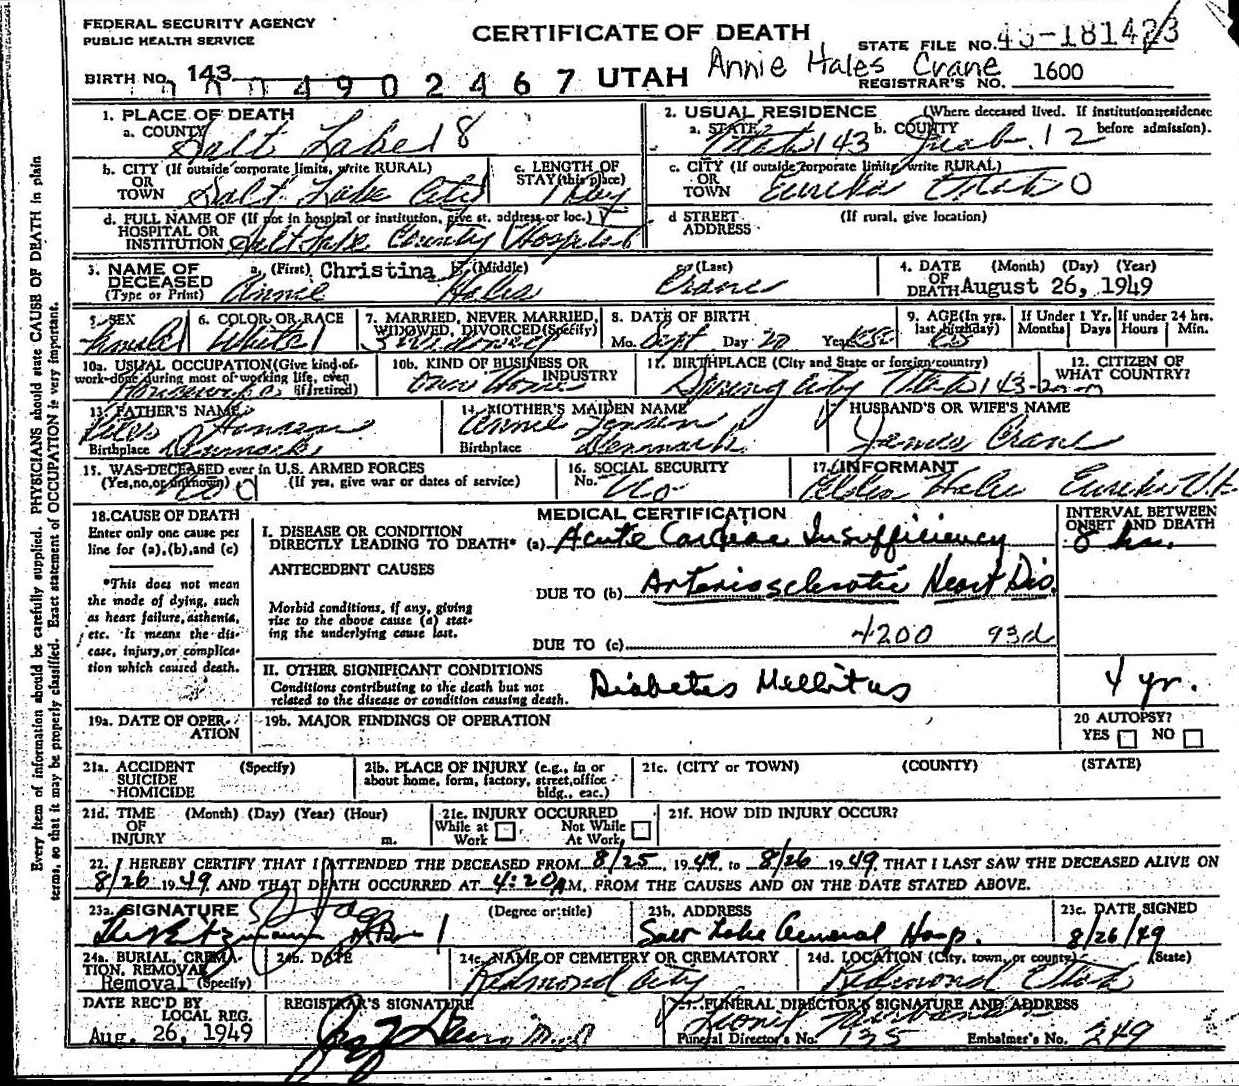 FEDERAL SECURITY AGENCY
PUBLIC HEALTH SERVICE
CERTIFICATE OF DEATH
STATE FILE NO. 43-181423
BIRTH NO. 143
490 2467 UTAH Annie Hales Crane
REGISTRAR'S NO. 1600
1. PLACE OF DEATH
a. COUNTY Salt Lake 18
2. USUAL RESIDENCE (Where deceased lived. If institution: residence before admission).
a. STATE Utah 143 b. COUNTY Juab 12
b. CITY (If outside corporate limits, write RURAL) OR TOWN Salt Lake City
c. LENGTH OF STAY (this place) 1 day
c. CITY (If outside corporate limits, write RURAL) OR TOWN Eureka Utah 0
d. FULL NAME OF (If not in hospital or institution, give st. address or loc.) HOSPITAL OR INSTITUTION Salt Lake County Hospital
d STREET ADDRESS (If rural, give location)
3. NAME OF DECEASED (Type or Print) a. (First) Annie Christina b. (Middle) Hales c. (Last) Crane
4. DATE OF DEATH (Month) (Day) (Year) August 26, 1949
5. SEX Female
6. COLOR OR RACE White
7. MARRIED, NEVER MARRIED, WIDOWED, DIVORCED (Specify) 3 Widowed
8. DATE OF BIRTH Mo. Sept Day 20 Year
9. AGE (In yrs. last birthday)
If Under 1 Yr. Months Days
If under 24 hrs. Hours Min.
10a. USUAL OCCUPATION (Give kind of work done during most of working life, even if retired) Housework
10b. KIND OF BUSINESS OR INDUSTRY Own Home
11. BIRTHPLACE (City and State or foreign country) Spring City Utah 143
12. CITIZEN OF WHAT COUNTRY?
13. FATHER'S NAME Hansen
Birthplace Denmark
14. MOTHER'S MAIDEN NAME Annie Jensen
Birthplace Denmark
HUSBAND'S OR WIFE'S NAME
James Crane
15. WAS DECEASED ever in U.S. ARMED FORCES
(Yes, no, or unknown) No (If yes, give war or dates of service)
16. SOCIAL SECURITY No. No
17. INFORMANT Hales Eureka Ut
18. CAUSE OF DEATH
Enter only one cause per line for (a), (b), and (c)
*This does not mean the mode of dying, such as heart failure, asthenia, etc. It means the disease, injury, or complication which caused death.
MEDICAL CERTIFICATION
INTERVAL BETWEEN ONSET AND DEATH
I. DISEASE OR CONDITION DIRECTLY LEADING TO DEATH* (a) Acute Cardiac Insufficiency 8 hrs.
ANTECEDENT CAUSES
Morbid conditions, if any, giving rise to the above cause (a) stating the underlying cause last.
DUE TO (b) Arteriosclerotic Heart Dis.
DUE TO (c) 4200 93d
II. OTHER SIGNIFICANT CONDITIONS
Conditions contributing to the death but not related to the disease or condition causing death.
Diabetes Mellitus 4 yr.
19a. DATE OF OPERATION
19b. MAJOR FINDINGS OF OPERATION
20 AUTOPSY? YES NO
21a. ACCIDENT SUICIDE HOMICIDE (Specify)
21b. PLACE OF INJURY (e.g., in or about home, form, factory, street, office bldg., eac.)
21c. (CITY or TOWN) (COUNTY) (STATE)
21d. TIME OF INJURY (Month) (Day) (Year) (Hour) m.
21e. INJURY OCCURRED While at Work Not While At Work
21f. HOW DID INJURY OCCUR?
22. I HEREBY CERTIFY THAT I ATTENDED THE DECEASED FROM 8/25, 1949, to 8/26 1949, THAT I LAST SAW THE DECEASED ALIVE ON
8/26 1949 AND THAT DEATH OCCURRED AT 4:20 A.M. FROM THE CAUSES AND ON THE DATE STATED ABOVE.
23a. SIGNATURE (Degree or title)
23b. ADDRESS Salt Lake General Hosp.
23c. DATE SIGNED 8/26/49
24a. BURIAL, CREMATION, REMOVAL Removal (Specify)
24b. DATE
24c. NAME OF CEMETERY OR CREMATORY Redmond City
24d. LOCATION (City, town, or county) (State) Redmond Utah
DATE REC'D BY LOCAL REG. Aug. 26, 1949
REGISTRAR'S SIGNATURE M.D.
FUNERAL DIRECTOR'S SIGNATURE AND ADDRESS
Funeral Director's No. 135 Embalmer's No. 249
Every item of information should be carefully supplied. PHYSICIANS should state CAUSE OF DEATH in plain
terms, so that it may be properly classified. Exact statement of OCCUPATION is very important.